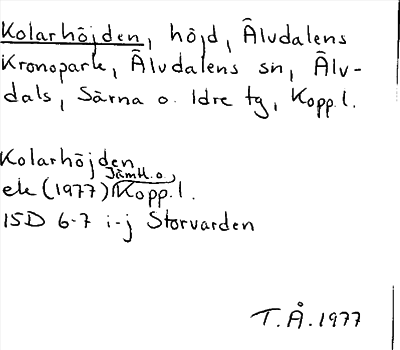 Kolarhöjden, höjd, Älvdalens
Kronopark, Älvdalens sn, Älv-
dals, Särna o. Idre tg, Kopp.l.
Kolarhöjden
Jämtl. o.
ek (1977) Kopp.l.
15D 6-7 i-j Storvarden
T.Å. 1977